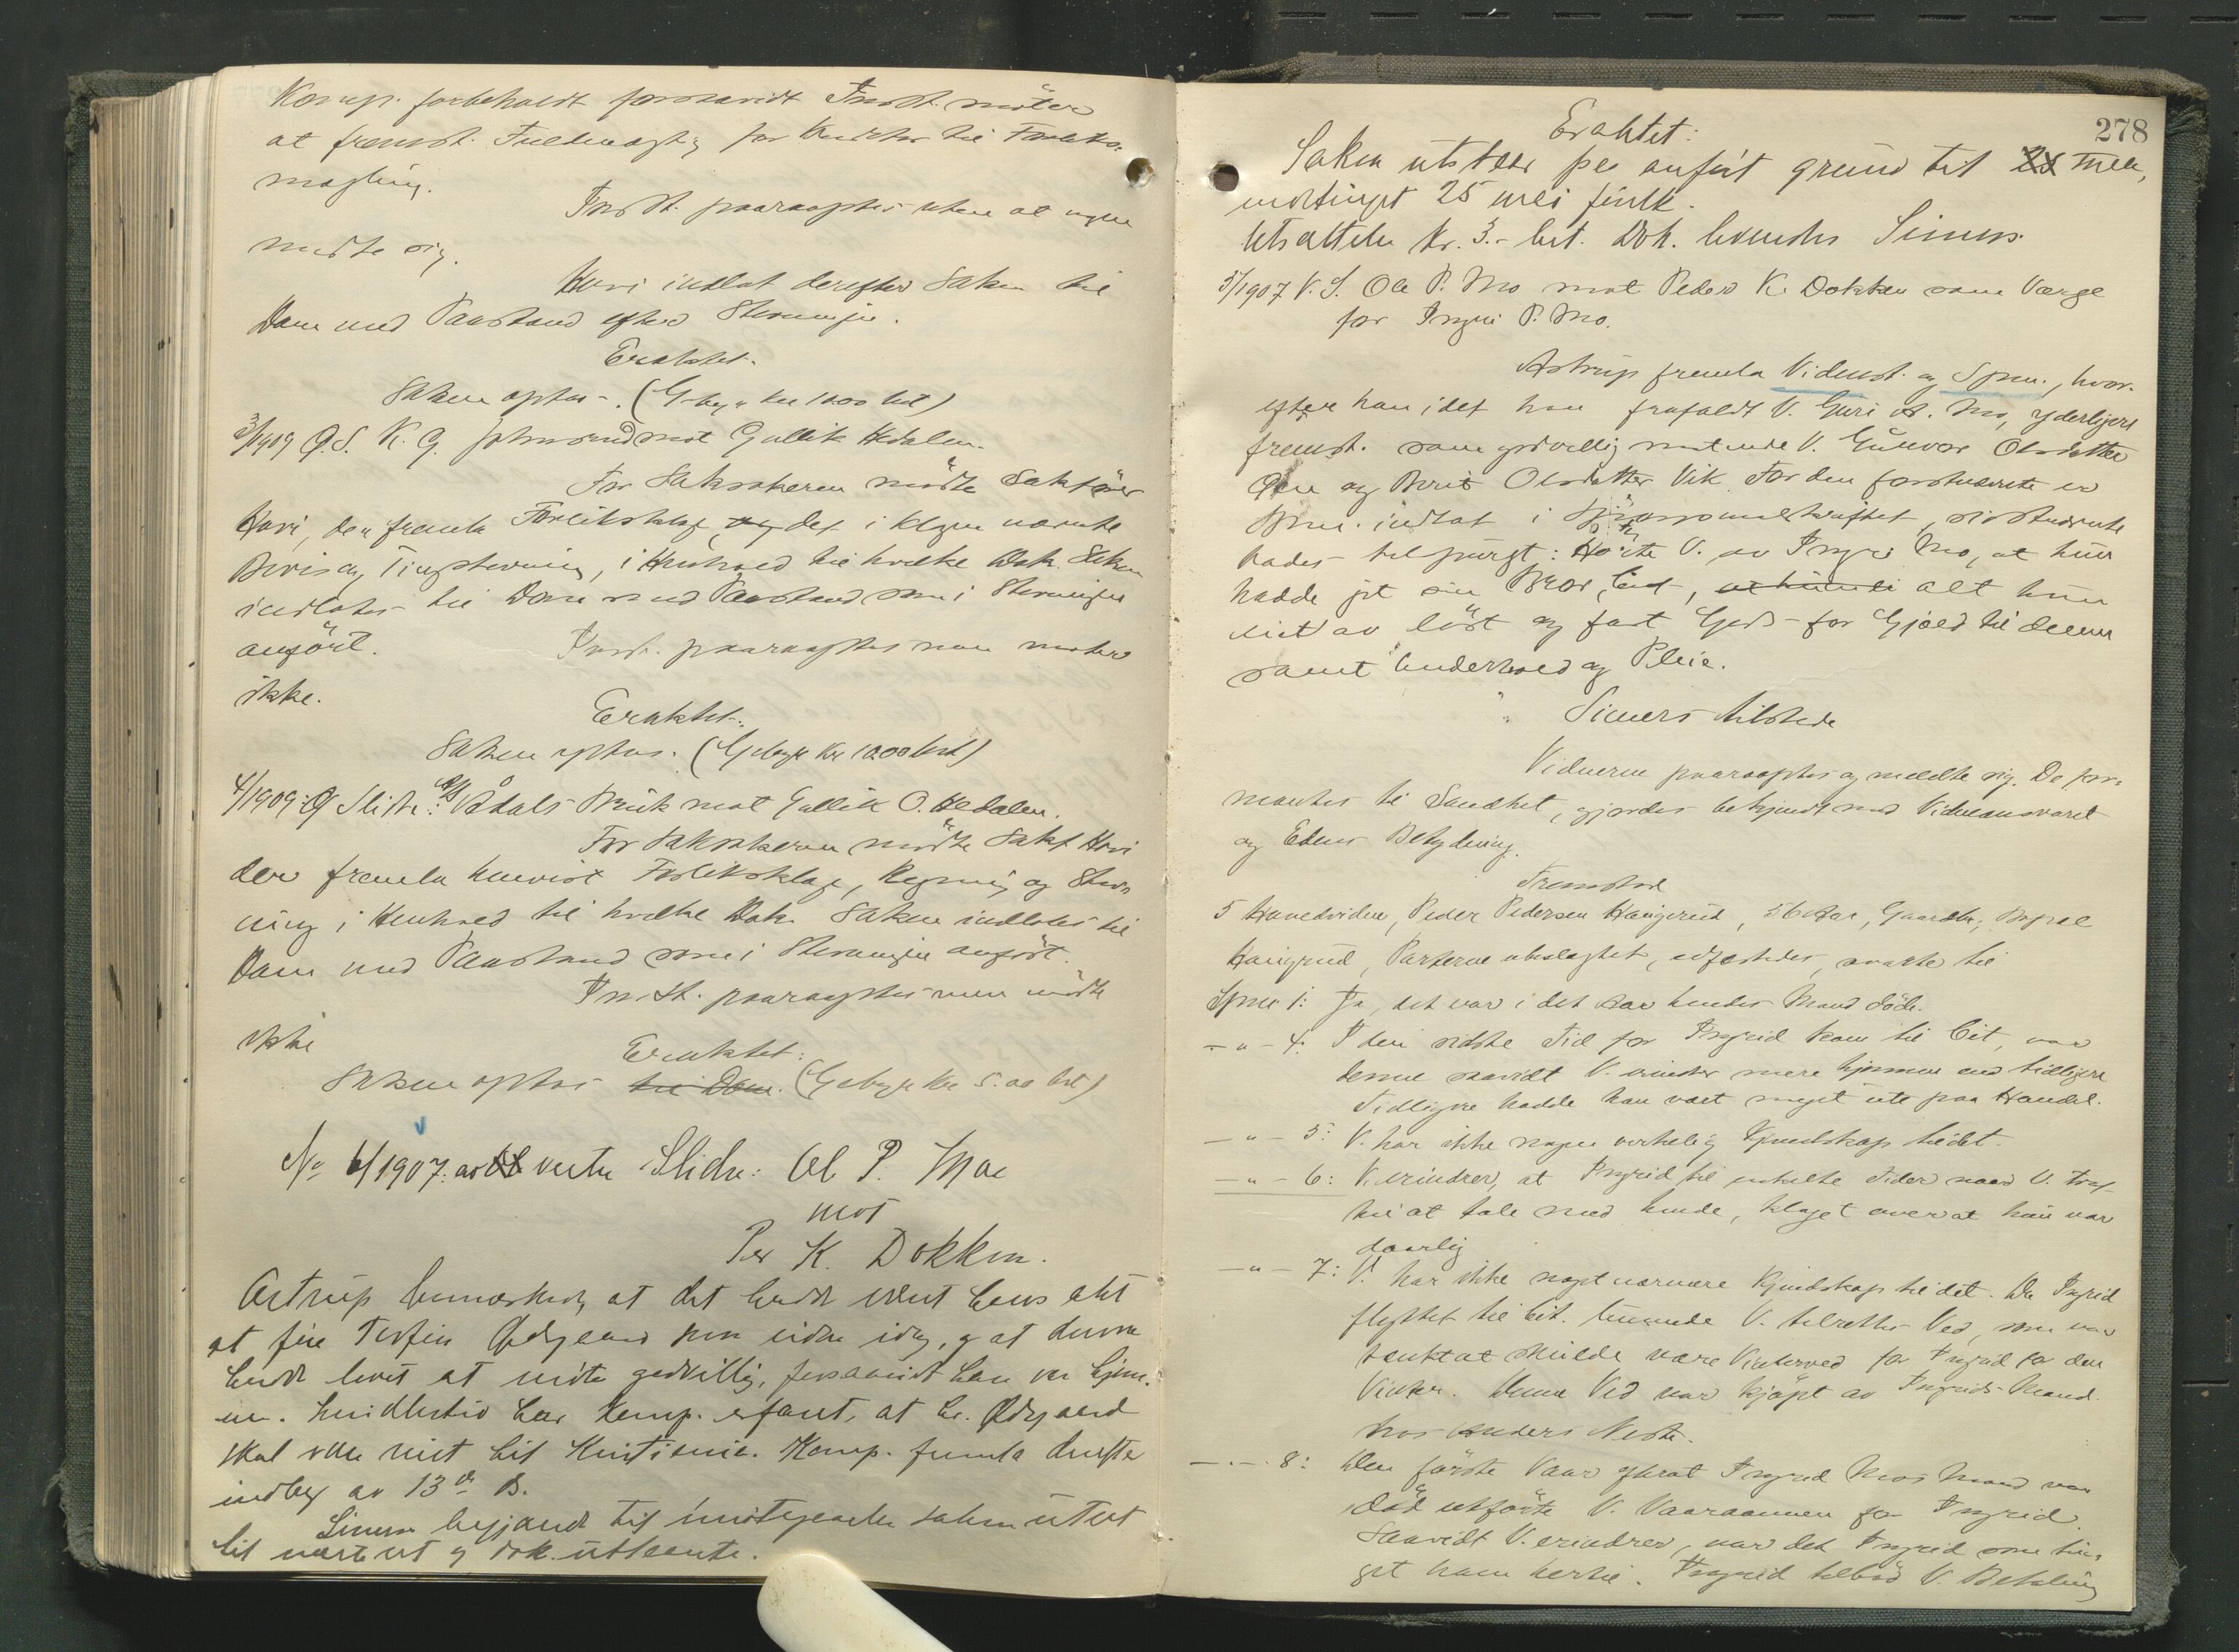 Komp. forbeholdt forsaavidt Indst. møter
at fremst. Fuldmagt for til Forliks-
mægling.
Indst. paaraaptes uten at nogen
meldte sig.
Hovi indlot derefter Saken til
Dom med Paastand efter Stevningen.
Eraktet.
Saken optas. (Gebyr Kr 10.00 bet)
3/1909 Ø.S. K. G. mot Gullik Hedalen.
For Saksøkeren mødte Sakfører
Hovi, der fremla Forliksklage, og det i Klagen nævnte
Bevis og Tingstevning, i Henhold til hvilke Dok. Saken
indlotes til Dom med Paastand som i Stevningen
anført. Indst. paaraaptes men møter
ikke.
Eraktet.
Saken optas. (Gebyr Kr 10.00 bet)
4/1909 Ø Slidre: A/S Vådals Bruk mot Gullik O. Hedalen.
For Saksøkeren mødte Sakf Hovi
der fremla henvist Forliksklage, Regning og Stev-
ning i Henhold til hvilke Dok. Saken indlotes til
Dom med Paastand som i Stevningen anført.
Indst. paaraaptes men mødte
ikke
Eraktet:
Saken optas til Dom. (Gebyr Kr 5.00 bet)
No 6/1907. av vestre Slidre: Ol P. Moe
mot
Per K. Dokken.
Astrup bemærked, at det hadde været hans akt
at føre Torfin Ødegaard som vidne idag, og at denne
hadde lovet at møte godvillig, forsaavidt han var hjem-
me. Imidlertid har Komp. erfaret, at hr. Ødegaard
skal være reist til Kristiania. Komp. fremla derefter
indlæg av 13de ds.
Simers begjærte til imøtegaaelse saken utsat
til næste ret og dok. utlaante.
278
Eraktet:
Saken utstaar paa anført grund til XX mell,
omstinget 25 mai førstk.
Utsættelse kr. 3.- bet. Dok. leveredes Simers.
5/1907 V.S. Ole P. Mo mot Peder K. Dokken som Værge
for Ingri P. Mo.
Astrup fremla Vidnest. og Spm., hvor-
efter han idet han frafaldt V. Guri Mo, yderligere
fremst. som godvillig møtende V. Gunvor Olsdatter
og Berit Olsdatter Vik. For den førstnævnte er
Spm. indtat i Spørsmaalsskriftet, sidstnævnte
bades tilspurgt: Hørte V. av Ingri Mo, at hun
hadde git sin Bror, Eit, at hun alt hun
eiet av løst og fast Gods for Gjæld til denne
samt Underhold og Pleie.
Simers tilstede
Vidnerne paaraaptes og meldte sig. De for-
mantes til Sandhet, gjordes bekjendt med Vidneansvaret
og Edens Betydning.
Fremstod
5 Hovedvidne, Peder Pedersen Haugerud, 56 Aar, Gaardbr., Bopæl
Haugrud, Parterne ubeslægtet, edfæstedes, svarte til
Spm 1: Ja, det var i det Aar hendes Mand døde.
— " — 4: I den sidste Tid før Ingrid kom til Eit, var
denne saavidt V. erindrer mere hjemme end tidligere
Tidligere hadde han vært meget ute paa Handel.
— " — 5: V. har ikke nogen virkelig Kjendskap til det.
— " — 6: V. erindrer, at Ingrid til enkelte Tider naar V. traf
til at tale med hende, klaget over at hun var
daarlig
— " — 7: V. har ikke noget nærmere Kjendskap til det. Da Ingrid
flyttet til Eit. tømmede V. tilrette Ved, som var
tænkt at skulde være Vinterved for Ingrid for den
Vinter. Denne Ved var kjøpt av Ingrids Mand
hos Anders Neste.
— " — 8: Den første Vaar efterat Ingrid Mos Mand var
død utførte V. Vaaraannen for Ingrid.
Saavidt V. erindrer, var det Ingrid som tin-
get ham hertil. Ingrid tilbød V. Betaling